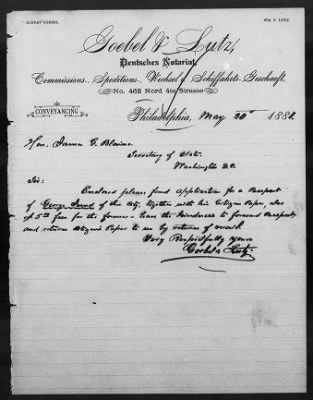 GUSTAV GOEBEL
WM. F. LUTZ.
Goebel & Lutz,
Deutsches Notariat,
Commissions-, Speditions-, Wechsel- u. Schifffahrts-Geschaeft,
No. 462 Nord 4te Strasse
CONVEYANCING.
Philadelphia, May 20" 1881
Hon. James G. Blaine
Secretary of State
Washington D.C.
Sir:
Enclosed please find Application for a Passport
of George of this City, together with his Citizen Paper, also
$5 00 fee for the former. Have the kindness to forward Passport
and return Citizens Paper to us by return of mail
Very Respectfully Yours
Goebel & Lutz.